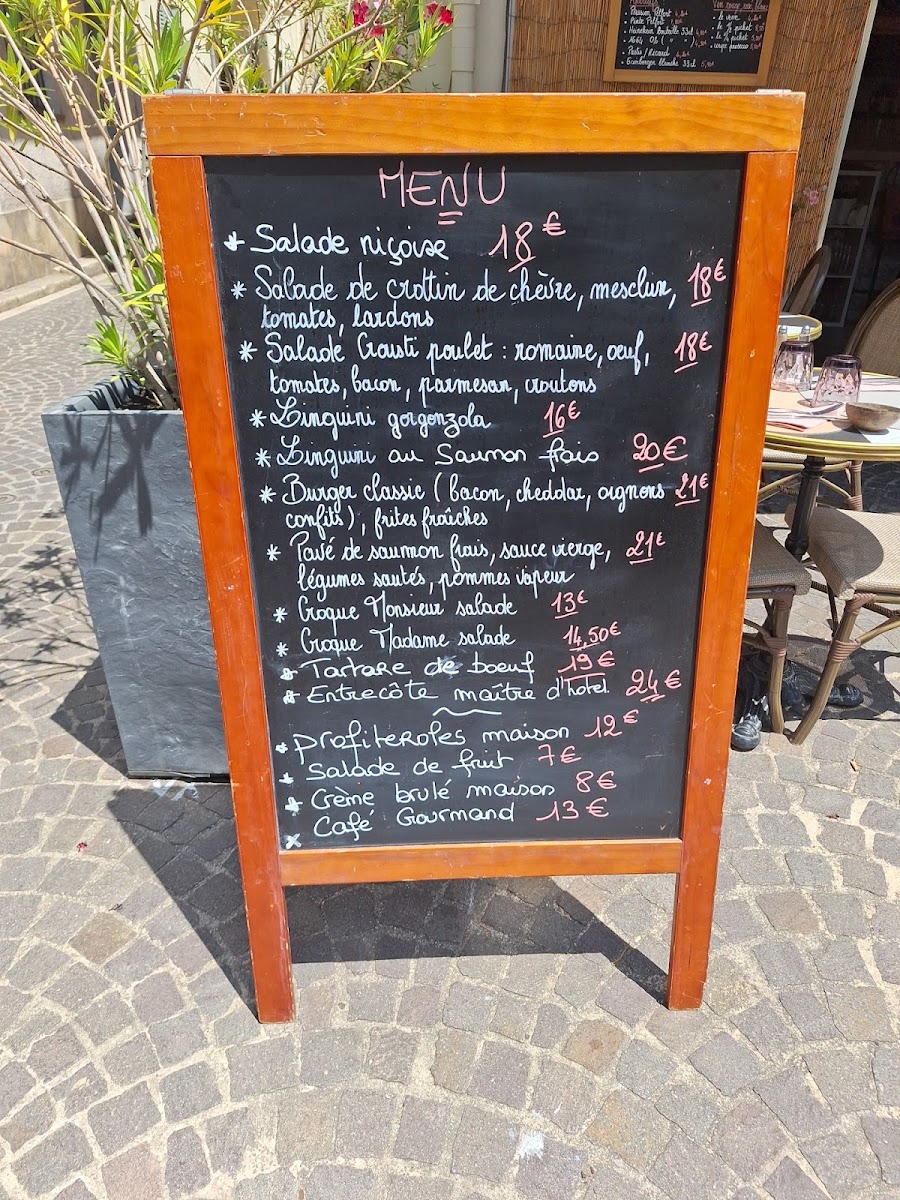 Pression Pelfort
Pinte Pelfort
Heineken Bouteille 33cl
1664
Pastis / Ricard
blanche 33cl 5,90€
le verre
pichet
pichet
MENU
* Salade niçoise 18€
* Salade de crottin de chèvre, mesclun, 18€
tomates, lardons
* Salade Crousti poulet : romaine, oeuf, 18€
tomates, bacon, parmesan, croutons
* Linguini gorgonzola 16€
* Linguini au Saumon frais 20€
* Burger classic (bacon, cheddar, oignons 21€
confits), frites fraîches
* Pavé de saumon frais, sauce vierge, 21€
légumes sautés, pommes vapeur
* Croque Monsieur salade 13€
* Croque Madame salade 14,50€
* Tartare de boeuf 19€
* Entrecôte maître d'hotel 24€
* profiteroles maison 12€
* Salade de fruit 7€
* Crème brulé maison 8€
* Café Gourmand 13€